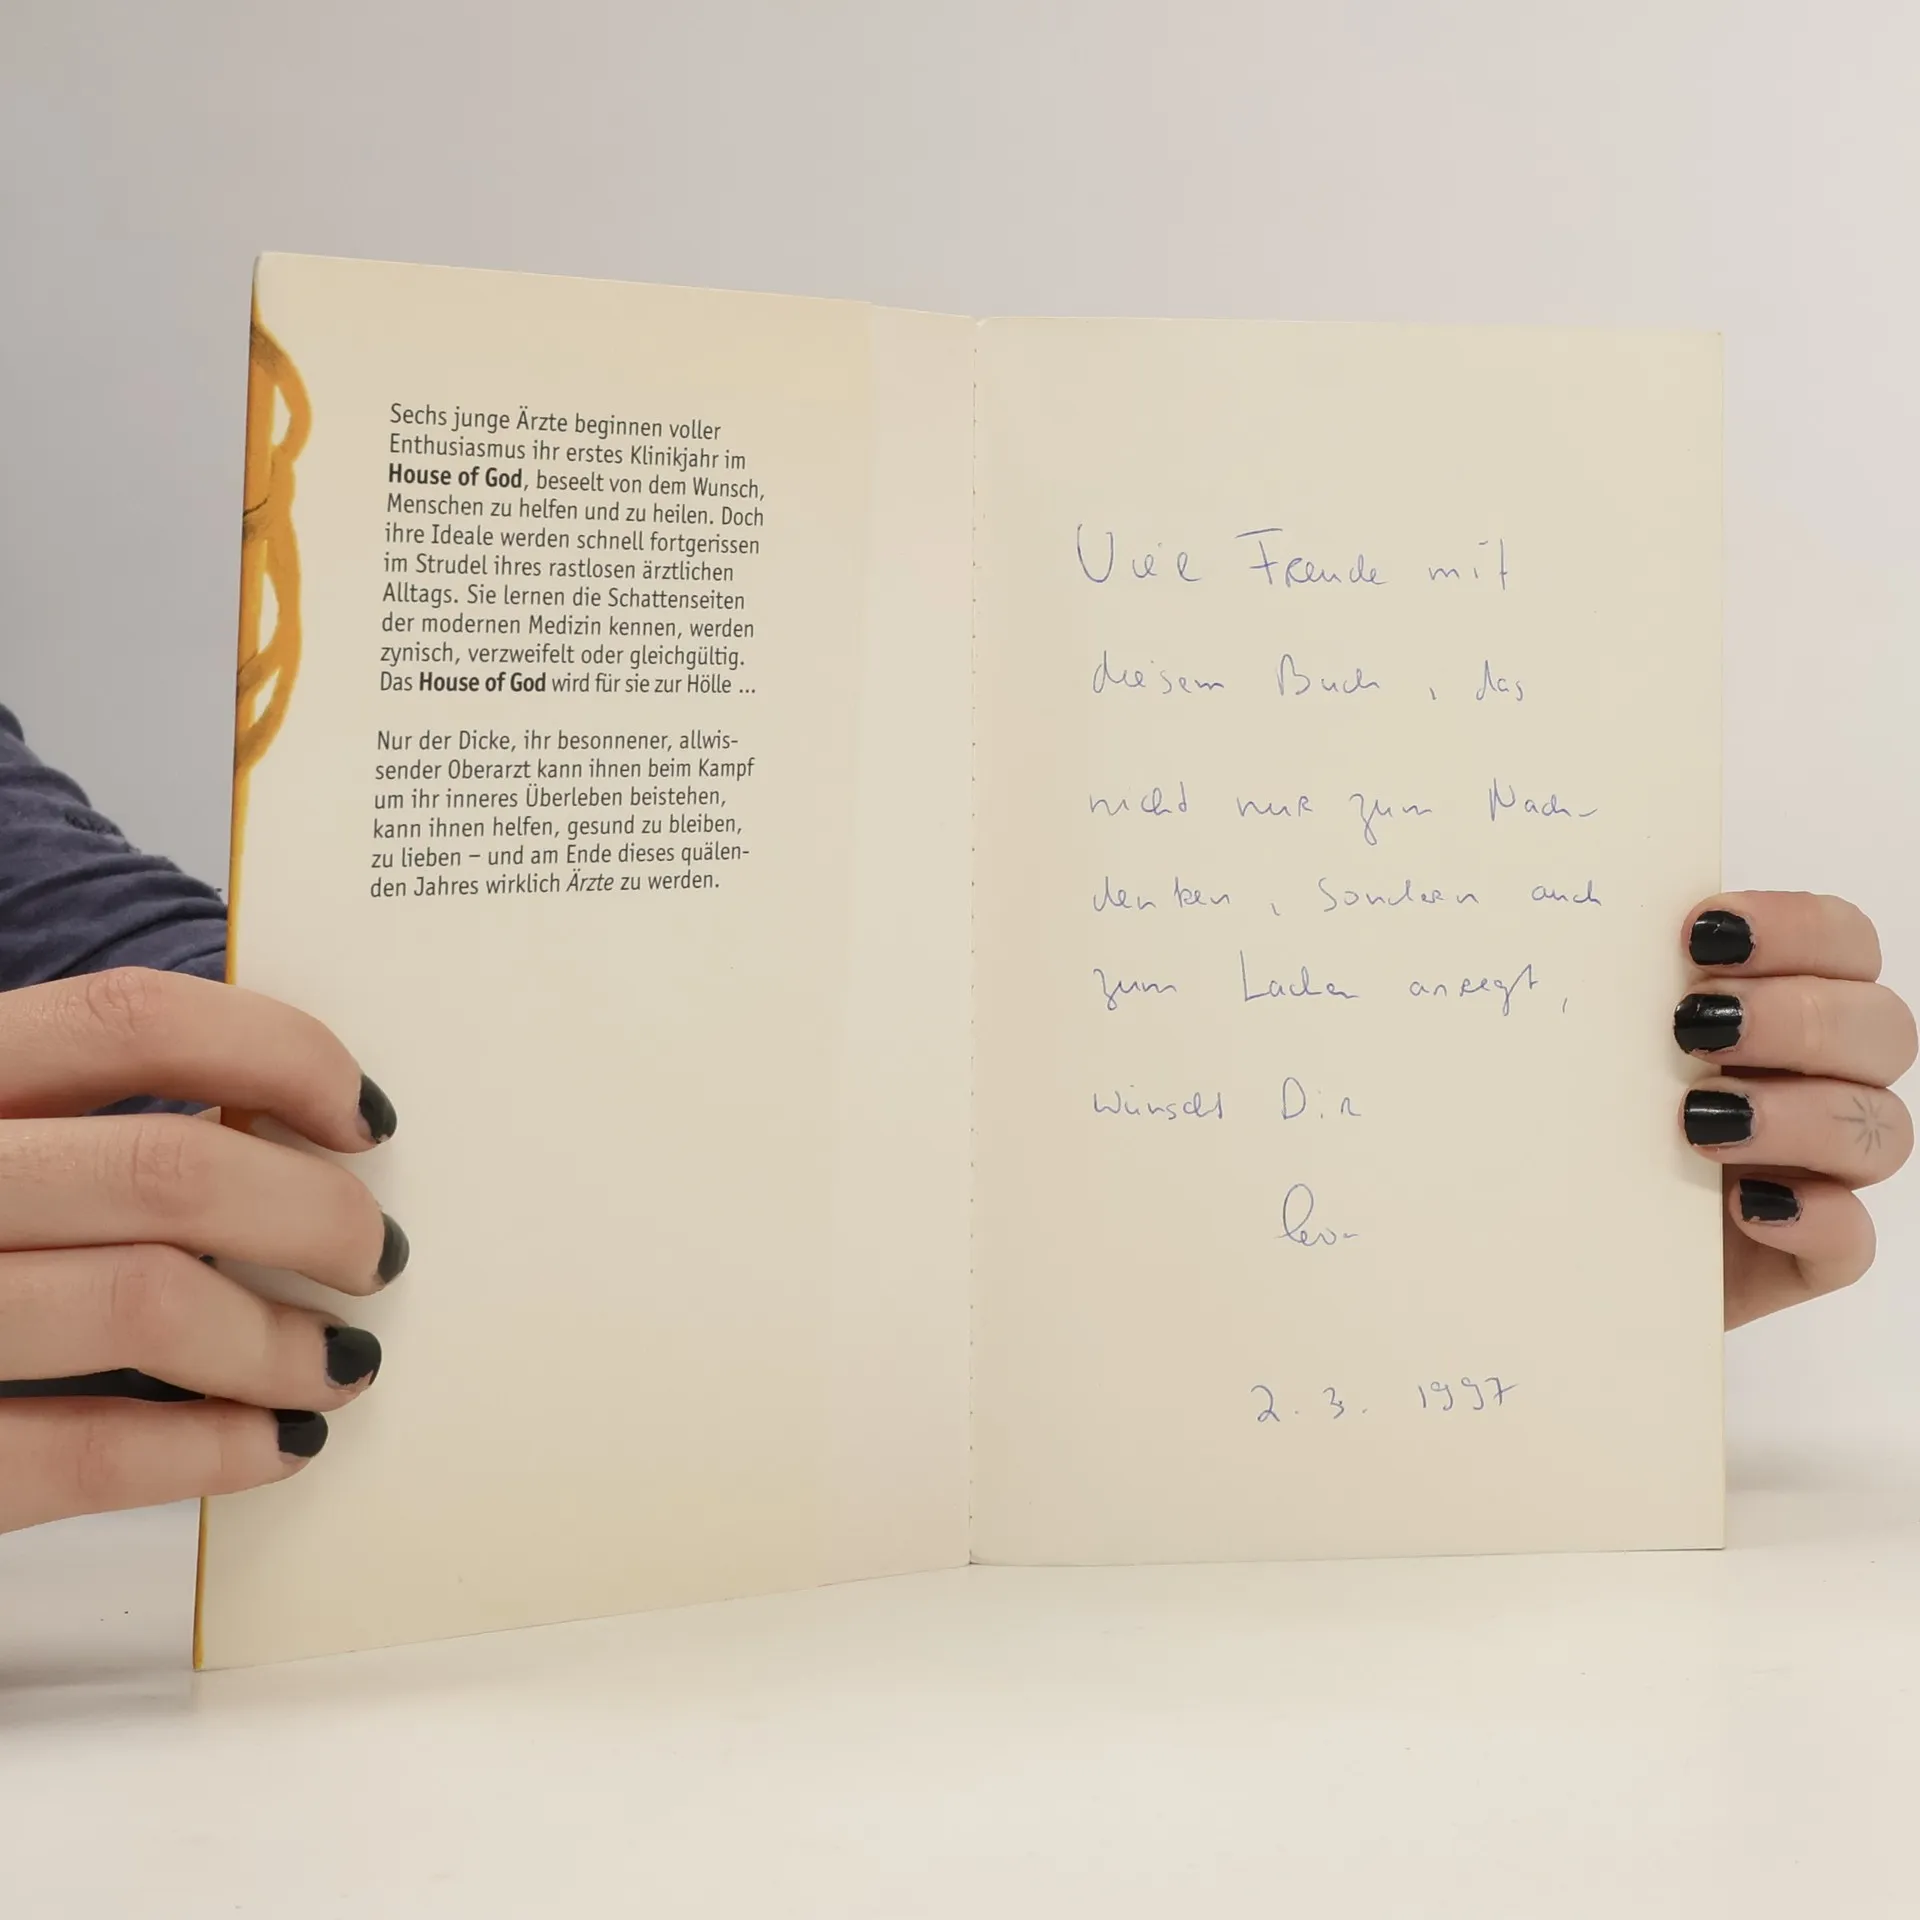 Sechs junge Ärzte beginnen voller
Enthusiasmus ihr erstes Klinikjahr im
House of God, beseelt von dem Wunsch,
Menschen zu helfen und zu heilen. Doch
ihre Ideale werden schnell fortgerissen
im Strudel ihres rastlosen ärztlichen
Alltags. Sie lernen die Schattenseiten
der modernen Medizin kennen, werden
zynisch, verzweifelt oder gleichgültig.
Das House of God wird für sie zur Hölle ...
Nur der Dicke, ihr besonnener, allwis-
sender Oberarzt kann ihnen beim Kampf
um ihr inneres Überleben beistehen,
kann ihnen helfen, gesund zu bleiben,
zu lieben – und am Ende dieses quälen-
den Jahres wirklich Ärzte zu werden.
Viel Freude mit
diesem Buch, das
nicht nur zum Nach-
denken, sondern auch
zum Lachen anregt,
wünscht Dir
2. 3. 1997